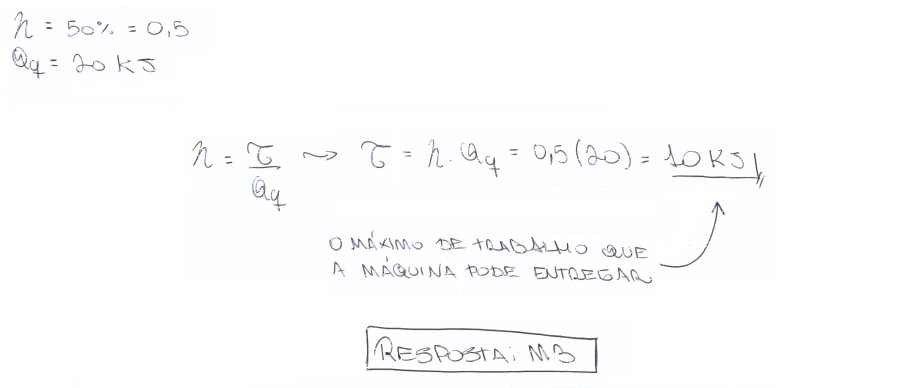 η = 50% = 0,5
Qq = 20 KJ
η = τ/Qq ~> τ = η . Qq = 0,5(20) = 10 KJ
O MÁXIMO DE TRABALHO QUE
A MÁQUINA PODE ENTREGAR
RESPOSTA: M3